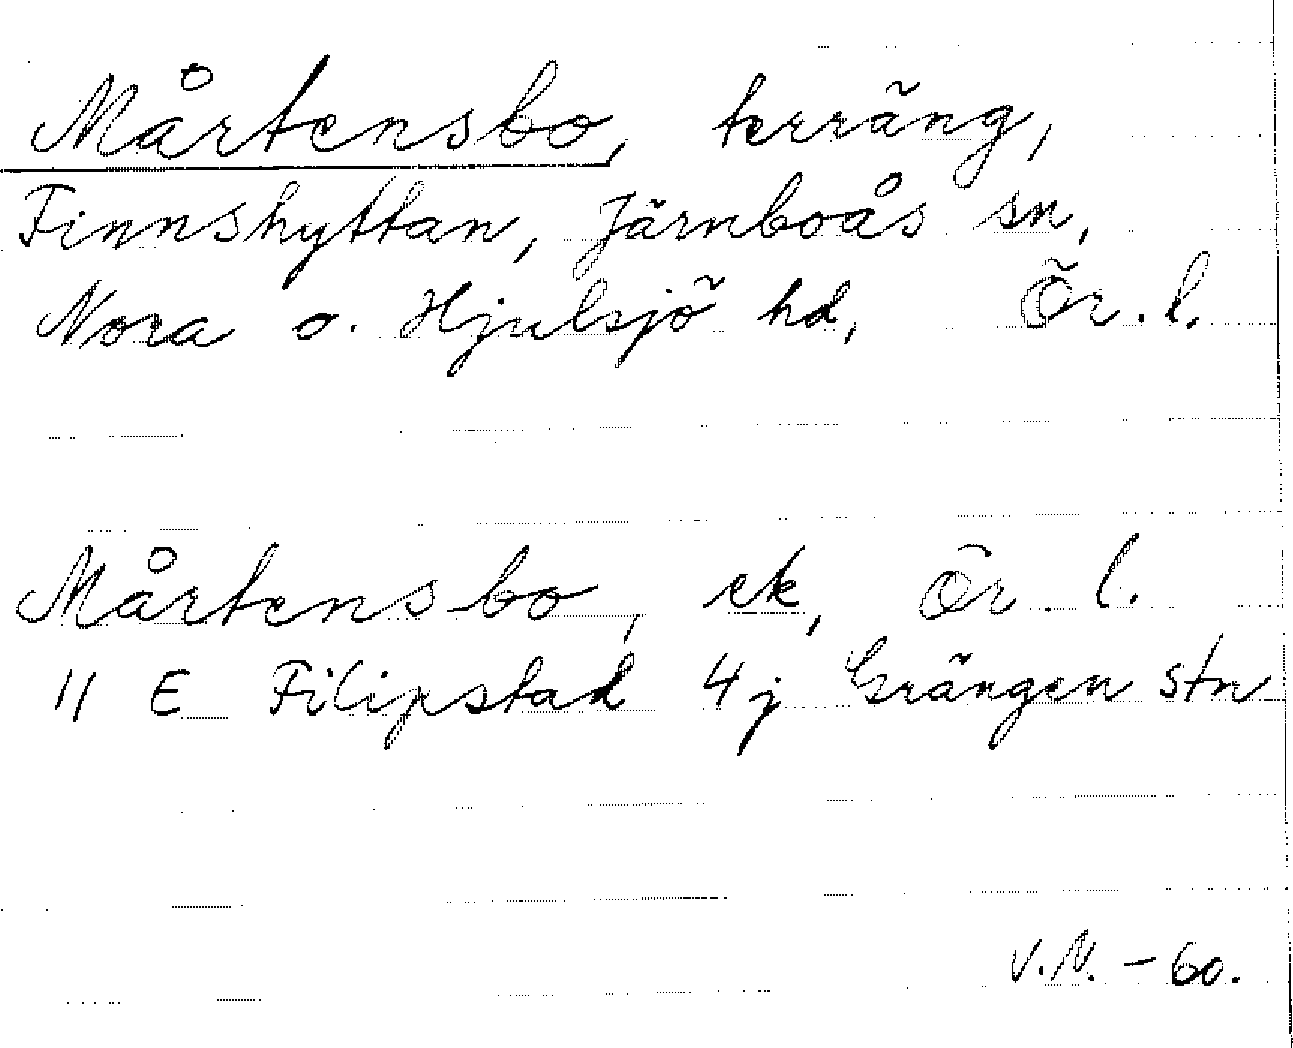 Mårtensbo, terräng,
Finnshyttan, Järnboås sn,
Nora o. Hjulsjö hd, Ör. l.
Mårtensbo, ek, Ör. l.
11 E Filipstad 4j Grängen stn
V.N. - 60.